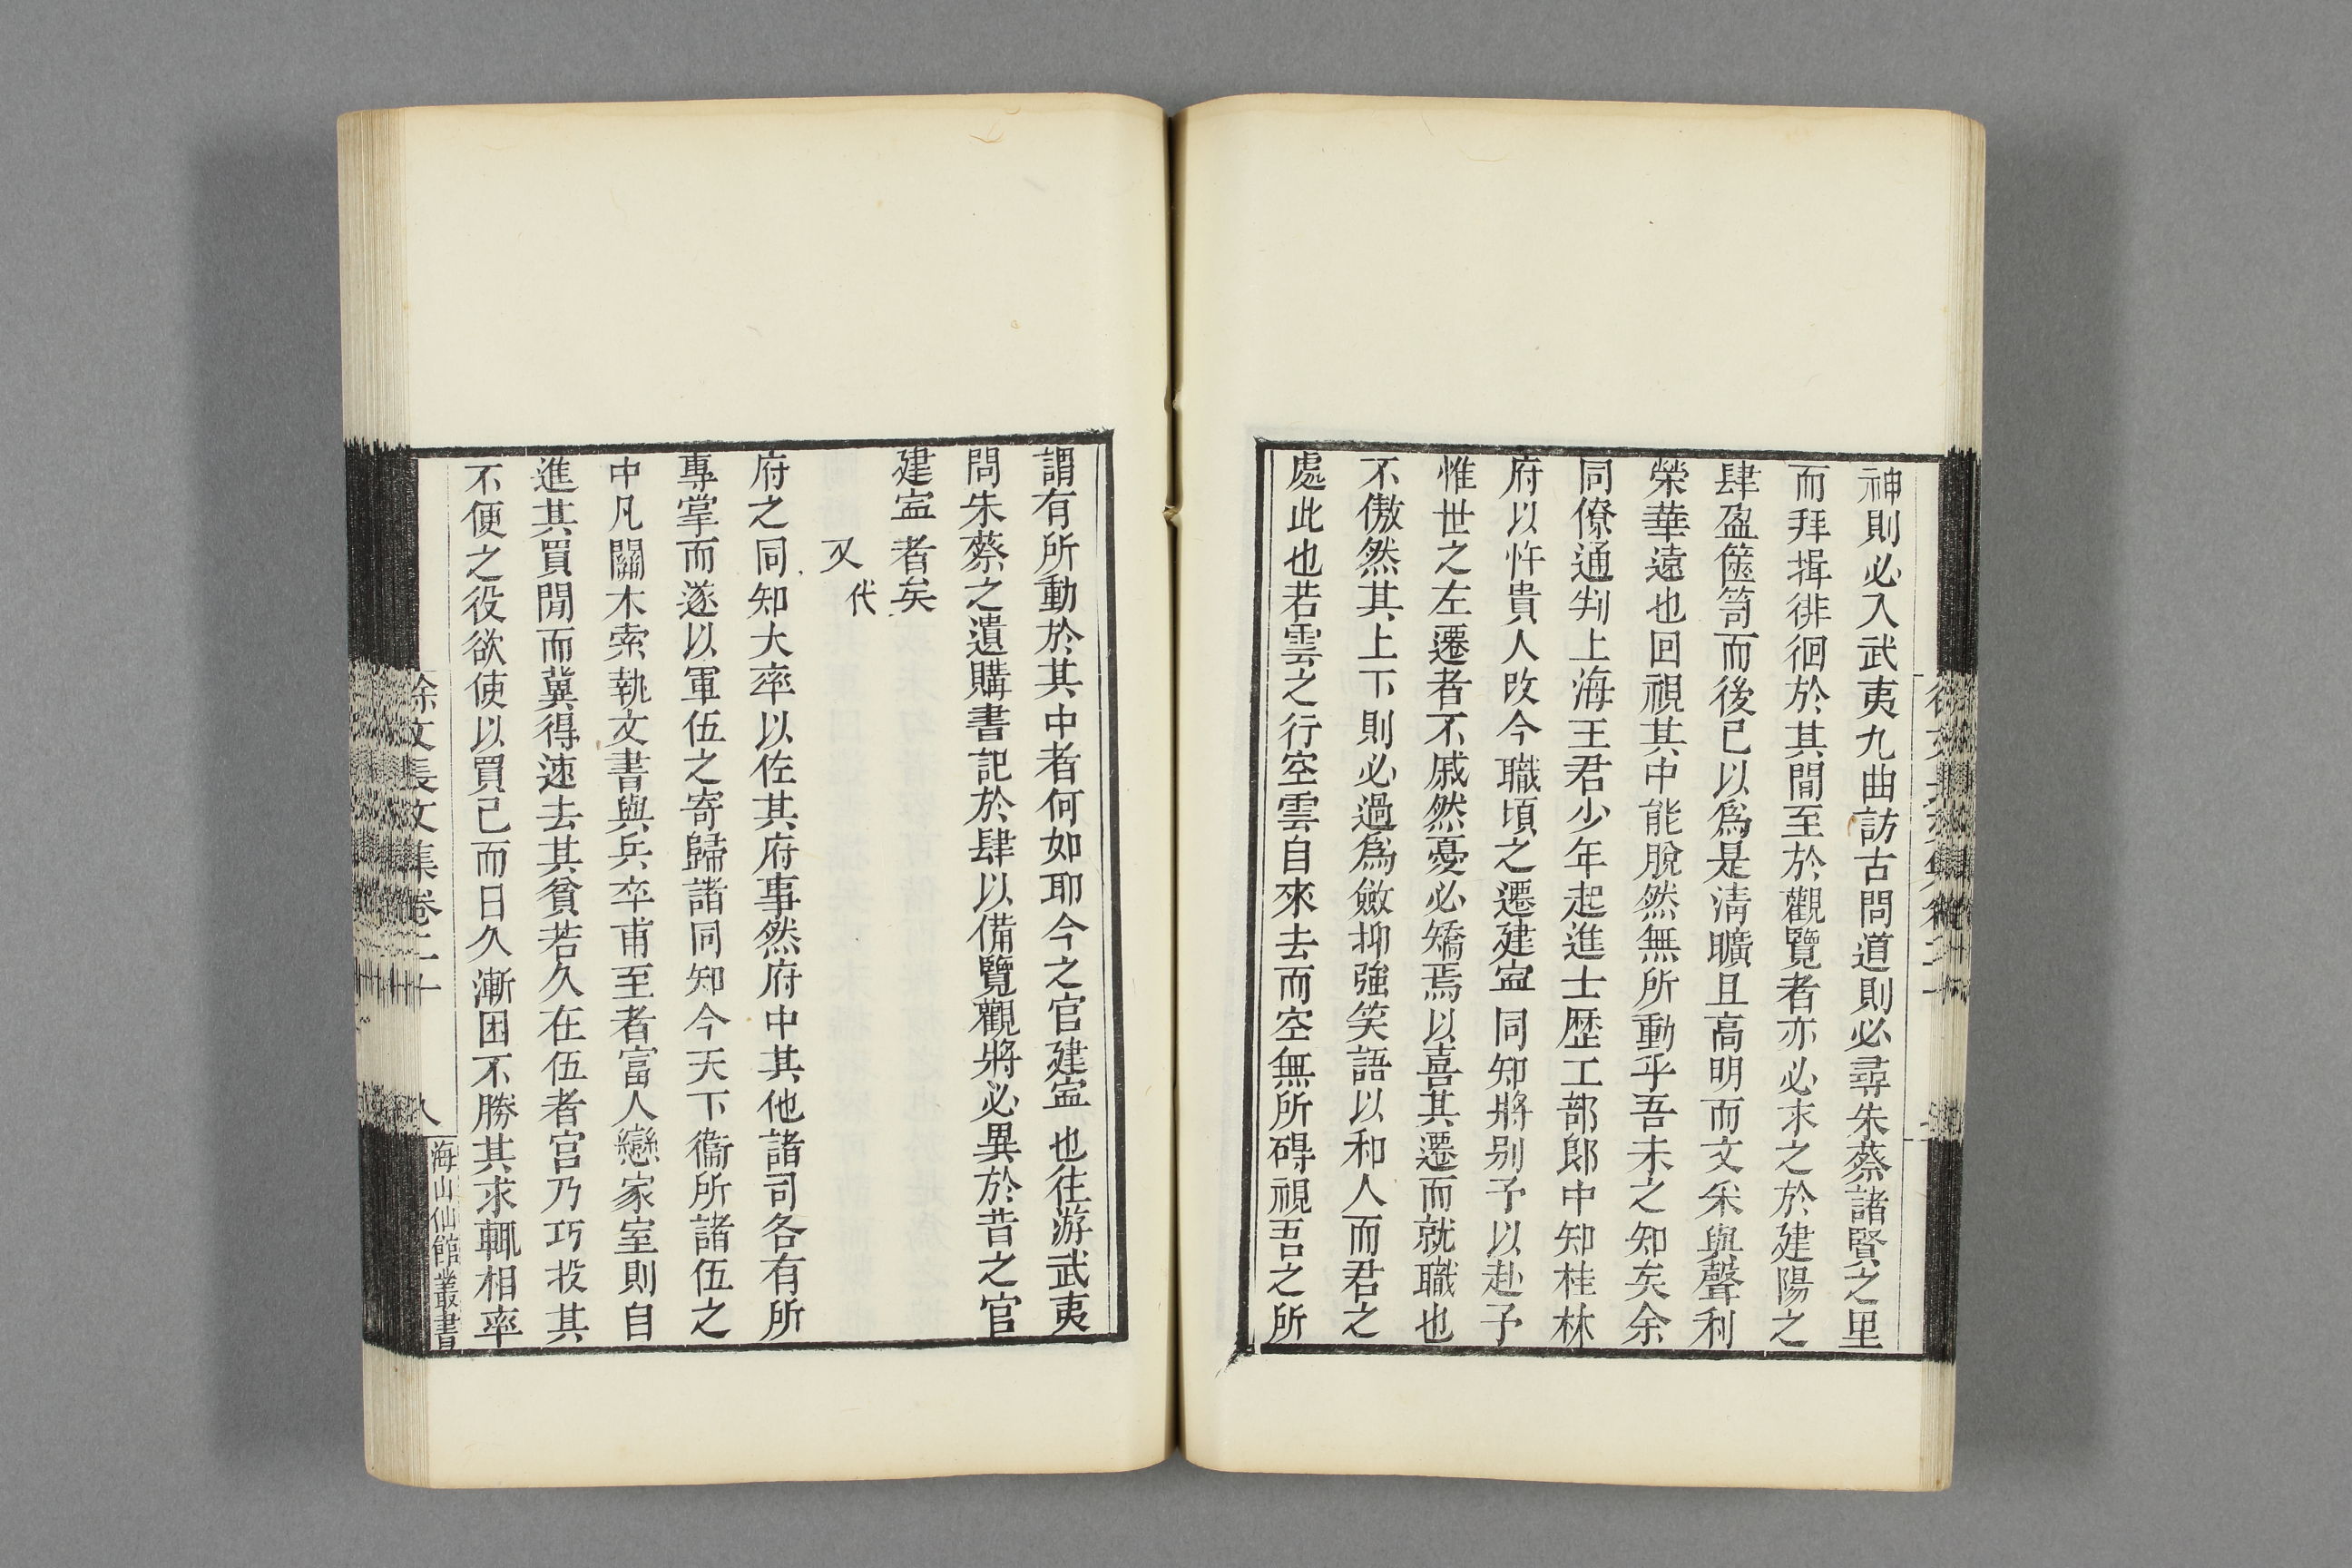 神則必入武夷九曲訪古問道則必尋朱蔡諸賢之里
而拜揖徘徊於其間至於觀覽者亦必求之於建陽之
肆盈篋笥而後已以爲是淸曠且高明而文采與聲利
榮華遠也回視其中能脫然無所動乎吾未之知矣余
同僚通判上海王君少年起進士歴工部郎中知桂林
府以忤貴人改今職頃之遷建寍同知將别予以赴予
惟世之左遷者不戚然憂必矯焉以喜其遷而就職也
不傲然其上下則必過爲斂抑強笑語以和人而君之
處此也若雲之行空雲自來去而空無所碍視吾之所
謂有所動於其中者何如耶今之官建寍也往游武夷
問朱蔡之遺購書記於肆以備覽觀將必異於昔之官
建寍者矣
又代
府之同知大率以佐其府事然府中其他諸司各有所
專掌而遂以軍伍之寄歸諸同知今天下衞所諸伍之
中凡關木索執文書與兵卒甫至者富人戀家室則自
進其買閒而冀得速去其貧若久在伍者官乃巧投其
不便之役欲使以買已而日久漸困不勝其求輒相率
徐文長文集卷二十
八
海山仙館叢書